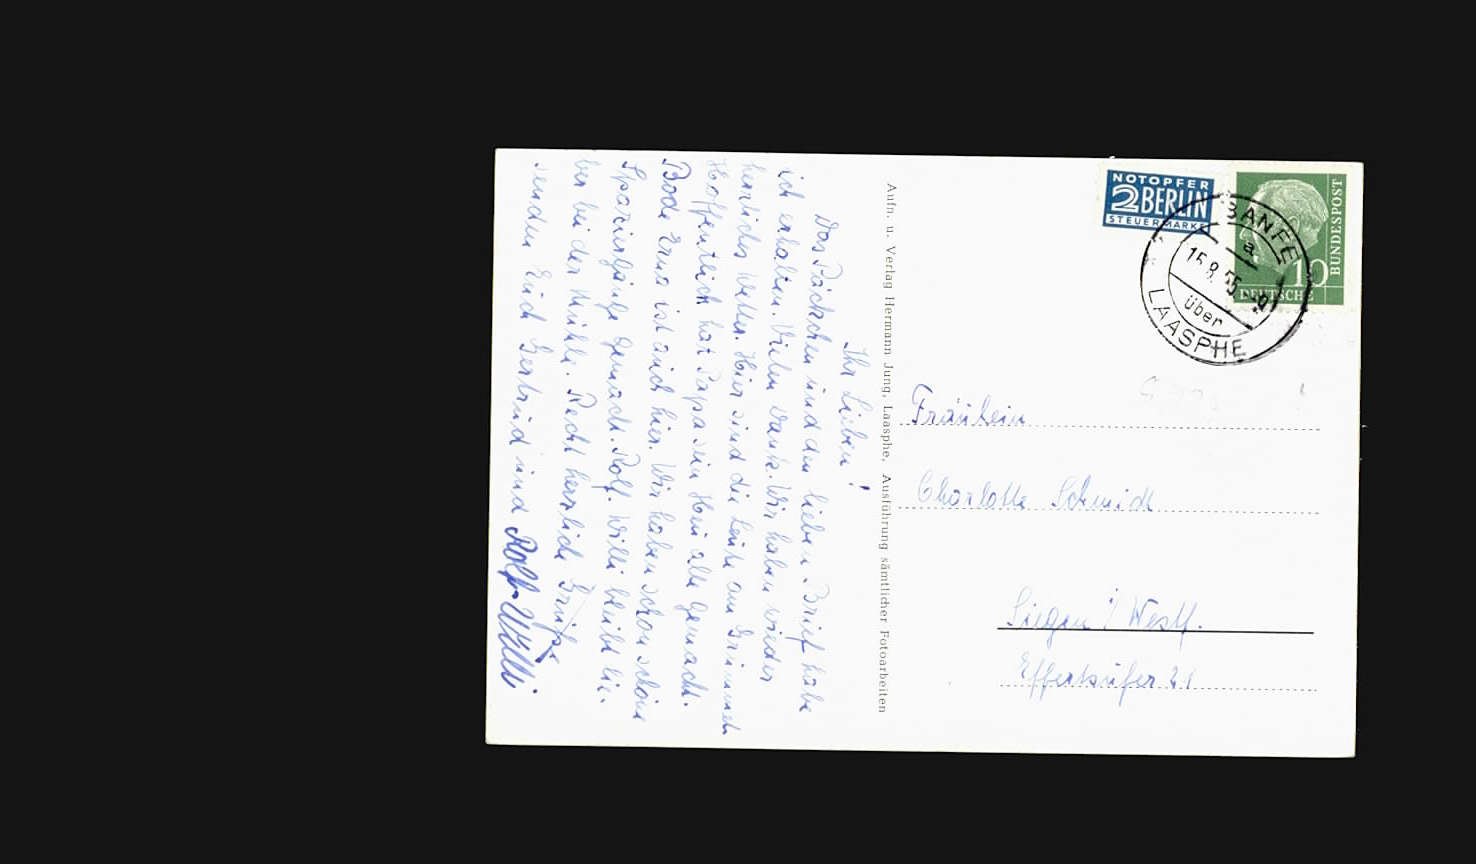 Ihr Lieben!
Das Päckchen und den lieben Brief habe
ich erhalten. Vielen Dank. Wir haben wieder
herrliches Wetter. Hier sind die Leute am Grummet
Hoffentlich hat Papa sein Heu alle gemacht.
Bode Erna ist auch hier. Wir haben schon schöne
Spaziergänge gemacht. Rolf-Willi bleibt lie-
ber bei der Mühle. Recht herzliche Grüße
senden Euch Gertrud und Rolf-Willi
Aufn. u. Verlag Hermann Jung, Laasphe, Ausführung sämtlicher Fotoarbeiten
NOTOPFER
2 BERLIN
STEUERMARKE
10
DEUTSCHE
BUNDESPOST
BANFE
a
15.8.55
über
LAASPHE
Fräulein
Charlotte Schmidt
Siegen i/Westf.
Effertsufer 21